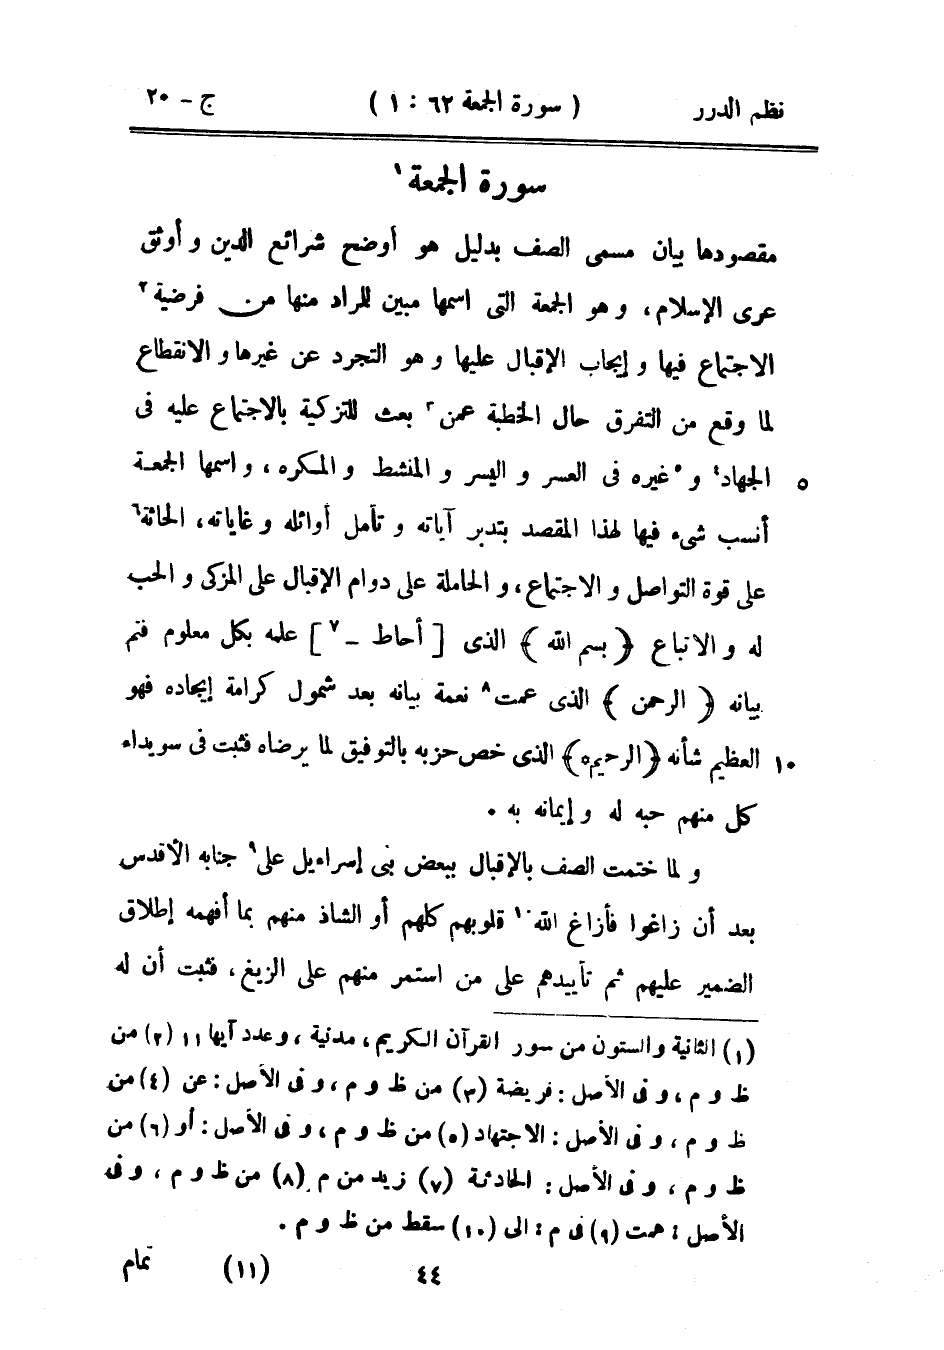 نظم الدرر ( سورة الجمعة ٦٢ : ١ ) ج - ٢٠
سورة الجمعة١
مقصودها بيان مسمى الصف بدليل هو أوضح شرائع الدين و أوثق
عرى الإسلام ، و هو الجمعة التى اسمها مبين للمراد منها من فرضية٢
الاجتماع فيها و إيجاب الإقبال عليها و هو التجرد عن غيرها و الانقطاع
لما وقع من التفرق حال الخطبة عمن٣ بعث للتزكية بالاجتماع عليه فى
٥ الجهاد٤ و٥ غيره فى العسر و اليسر و المنشط و المكره ، و اسمها الجمعة
أنسب شىء فيها لهذا المقصد بتدبر آياته و تأمل أوائله و غاياته ، الحاثة٦
على قوة التواصل و الاجتماع ، و الحاملة على دوام الإقبال على المزكى و الحب
له و الاتباع ﴿ بسم الله ﴾ الذى [ أحاط - ٧ ] علمه بكل معلوم فتم
بيانه ﴿ الرحمن ﴾ الذى عمت٨ نعمة بيانه بعد شمول كرامة إيجاده فهو
١٠ العظيم شأنه ﴿ الرحيم ٥﴾ الذى خص حزبه بالتوفيق لما يرضاه فثبت فى سويداء
كل منهم حبه له و إيمانه به .
و لما ختمت الصف بالإقبال ببعض بنى إسراءيل على٩ جنابه الأقدس
بعد أن زاغوا فأزاغ الله١٠ قلوبهم كلهم أو الشاذ منهم بما أفهمه إطلاق
الضمير عليهم ثم تأييدهم على من استمر منهم على الزيغ ، فثبت أن له
(١) الثانية والستون من سور القرآن الكريم ، مدنية ، وعدد آيها ١١ (٢) من
ظ و م ، و فى الأصل : فريضة (٣) من ظ و م ، و فى الأصل : عن (٤) من
ظ و م ، و فى الأصل : الاجتهاد (٥) من ظ و م ، و فى الأصل : أو (٦) من
ظ و م ، و فى الأصل : الحادثة (٧) زيد من م (٨) من ظ و م ، و فى
الأصل : همت (٩) فى م : الى (١٠) سقط من ظ و م .
٤٤ (١١) تمام